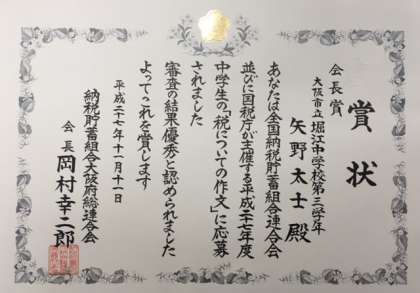 賞状
会長賞
大阪市立堀江中学校第三学年
矢野太士殿
あなたは全国納税貯蓄組合連合会
並びに国税庁が主催する平成二十七年度
中学生の「税についての作文」に応募
されました
審査の結果優秀と認められました
よってこれを賞します
平成二十七年十一月十一日
納税貯蓄組合大阪府総連合会
会長 岡村幸二郎